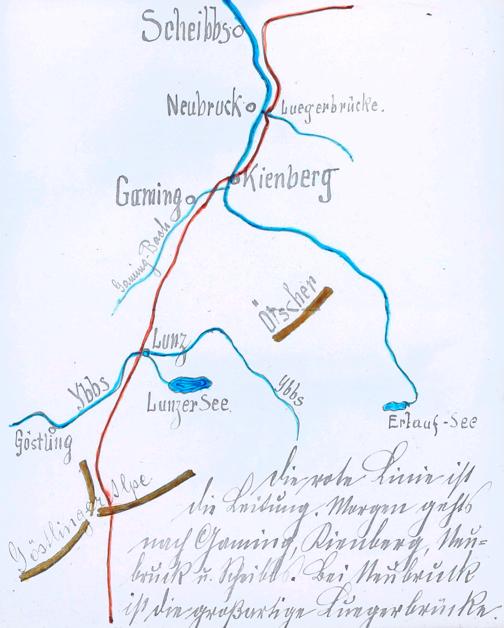 Scheibbs
Neubruck
Luegerbrücke.
Kienberg
Gaming
Gaming-Bach
Ötscher
Lunz
Ybbs
Lunzer See.
Ybbs
Erlauf-See
Göstling
Göstlinger Alpe
Die rote Linie ist
die Leitung. Morgen gehts
nach Gaming, Kienberg, Neu-
bruck u. Scheibbs. Bei Neubruck
ist die großartige Luegerbrücke.